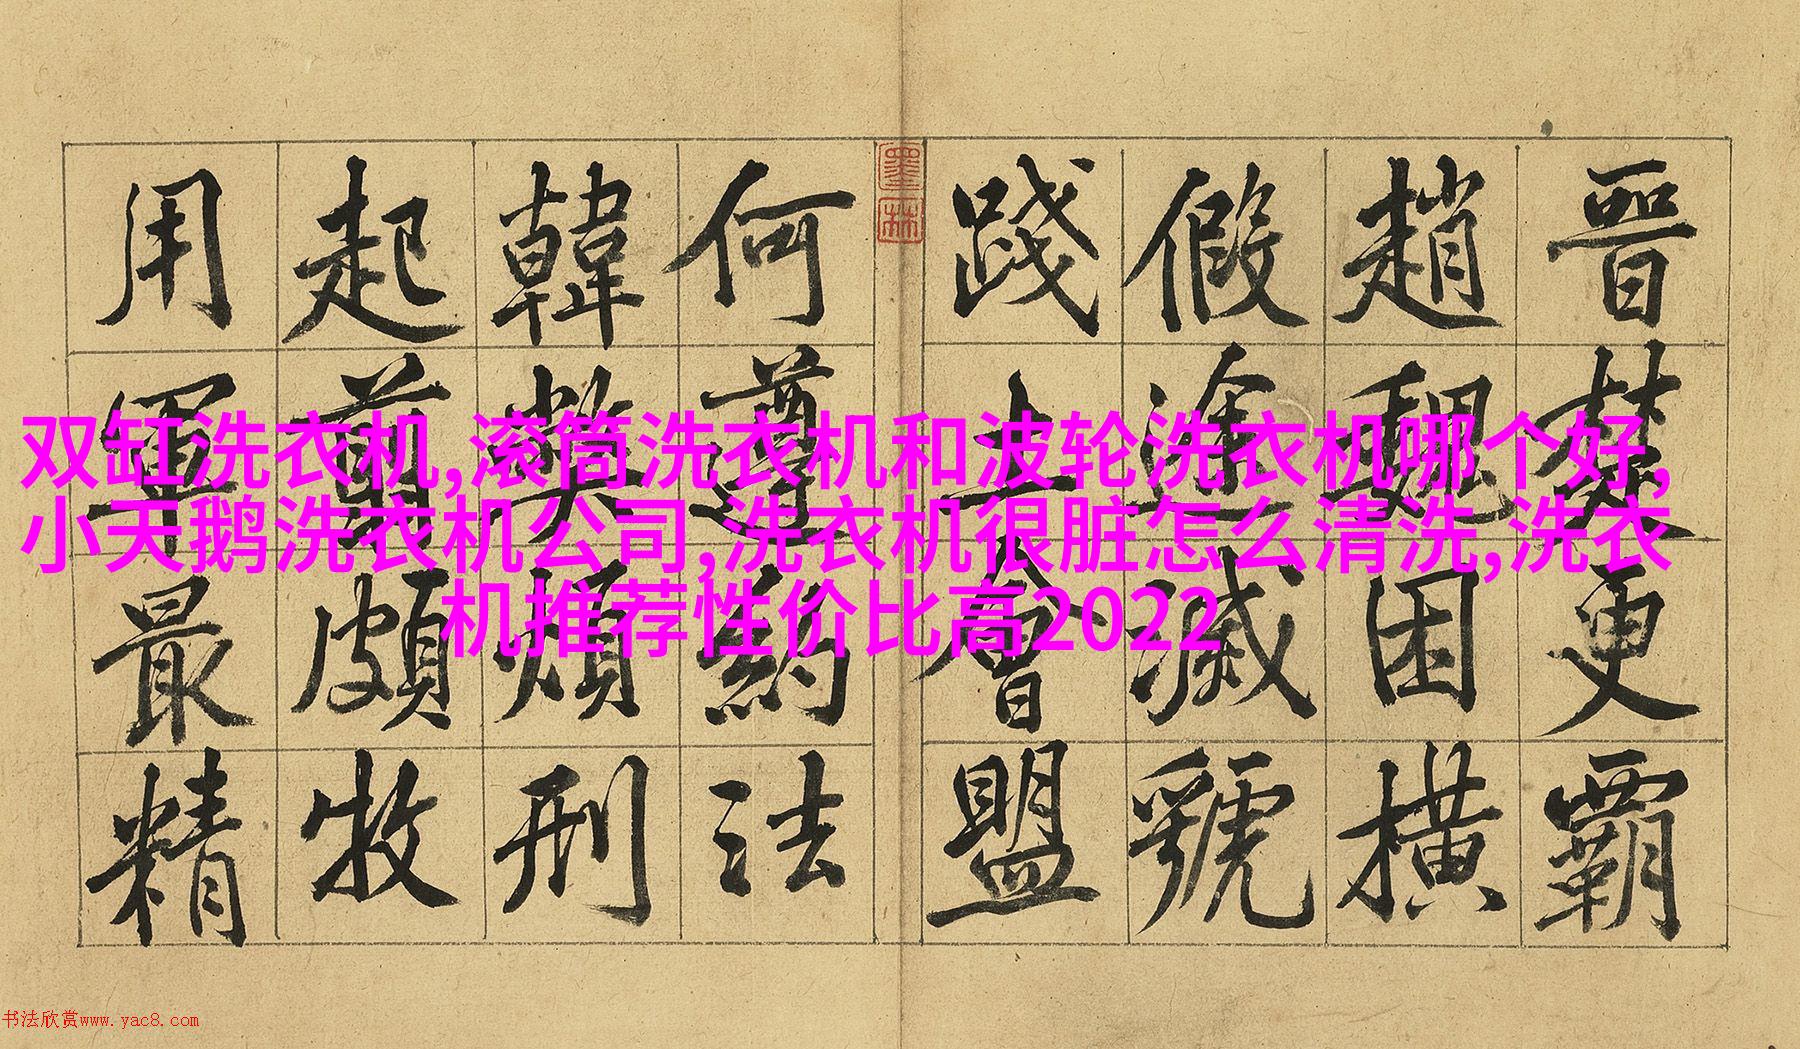 晉楚更霸
趙魏困橫
假途滅虢
踐土會盟
墨林
何遵約法
韓弊煩刑
起翦頗牧
用軍最精
双缸洗衣机,滚筒洗衣机和波轮洗衣机哪个好,
小天鹅洗衣机公司,洗衣机很脏怎么清洗,洗衣
机推荐性价比高2022
书法欣赏www.yac8.com